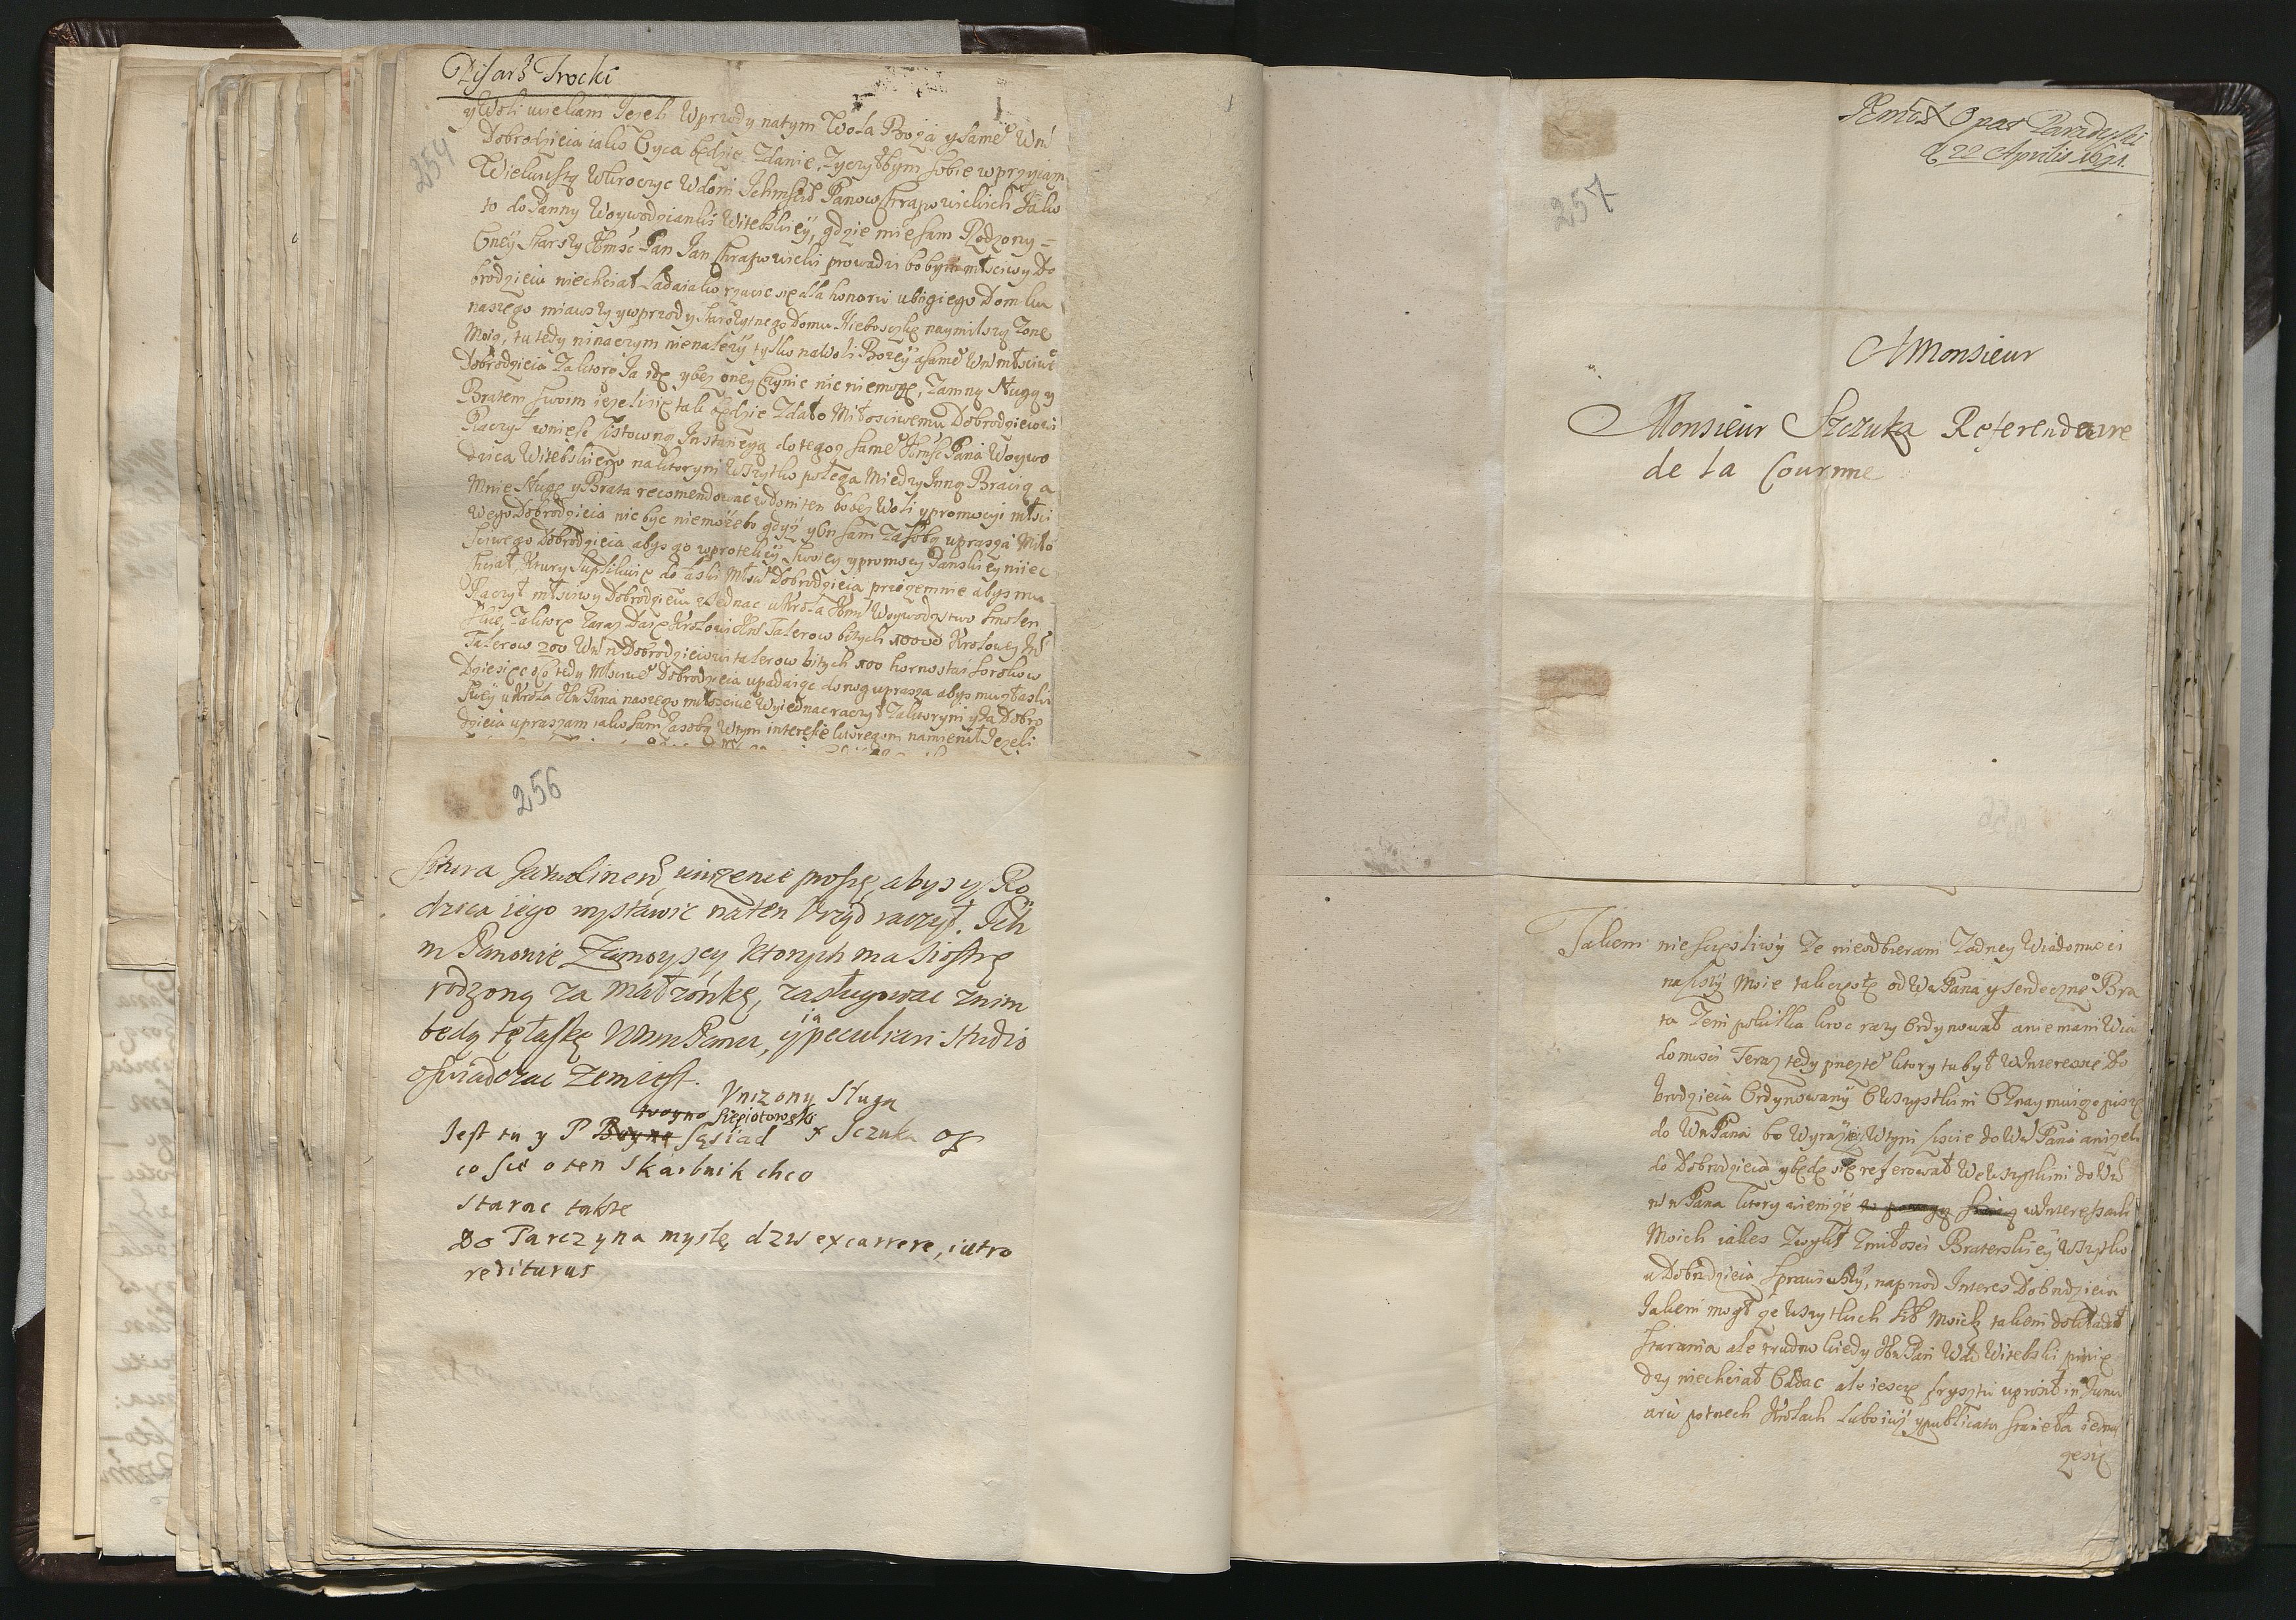 Pisarz Trocki
254
y Woli uciekam Jezeli wprzody natym Wola Boza y same Wm
Dobrodzieia iako Oyca będzie Zdanie, zyczyłbym sobie wprzyiazn
to do Panny Woywodzianki Witebskiey, gdzie mie sam Rodzony
Oney Starszy Jmsc Pan Jan Chrapowicki prowadzi bobym młsciwy Do
brodzieiu niechciał ladaiako rzucic się dla honoru ubogiego Domku
naszego miawszy wprzody Starozytnego Domu Nieboszkę naymilszą Zonę
Moię, tu tedy ninaczym nienalezy tylko nawoli Bozey y same Wm młsciwe
Dobrodzieia Zaktorą Ja idę y bez oney czynic nic niemogę, Zamną Sługą y
Bratem swoim iezeli się tak będzie Zdało Miłosciwemu Dobrodzieiowi
Raczył wniesc listowną Instancyą do tegoz same Jmsc Pana Woywo
dzica Witebskiego naktorym Wszytko polega Miedzy Inną Bracią a
Mnie Sługę y Brata recomendowac w Dom ten bo bez Woli y promocyi młsci
wego Dobrodzieia nic byc niemozebo gdyz y On sam Zasobą uprasza Miło
sciwego Dobrodzieia abys go wprotekcyi swoiey y promocy Panskiey miec
chciał, Ktury supplikuie do łaski Młsci Dobrodzieia przezemnie abys mu
Raczył młsciwy Dobrodzieiu ziednac u Krola Jmsci Woywodztwo Smolen
skie, Zaktore zaraz Daie Krolowi Jmsci Talerow bitych 1000 Krolowey Jmsci
Talerow 200 Wm Dobrodzieiowi talerow bitych 100 hornostai sorokow
Dziesięc o to tedy Młsciwe Dobrodzieia upadaiąc donog uprasza abys mu z łaski
Swey u Krola Jmsci Pana naszego miłosciwe Wyiednac raczył Zaktorym y Ja Dobro
dzieia upraszam iako sam Zasobą Wtym interesie ktoregom namienił Jezeli
256
uniżenie proszę, abys y Ro
dzica iego wystawic naten Urząd raczył. Ich
m Panowie Zamoyscy ktorych ma Siostrę
rodzoną za Małżonkę, zasługowac znim
będą tę łaskę WmmPana, y ia peculiari studio
oswiadczac zemiest.
Unizony Sługa
Jest tu y P Sąsiad X Sczuka
co sie o ten Skarbnik chco
starac takze
Do Parczyna myslę dzis excurrere, iutro
rediturus
257
Opat Paradyski
d 22 Aprilis 1691.
A Monsieur
Monsieur Szczuka Referendaire
de la Couronne
Takem niesczęsliwy Ze nieodbieram Zadney Wiadomosci
nalisty Moie takczęste od Wm Pana y serdeczne Bra
ta Zem pokilka kroc razy Ordynował aniemam Wia
domosci Teraz tedy przezte ktory tu był w Interessie Do
brodzieia Ordynowany Owszystkim Oznaymuię piszę
do Wm Pana bo Wyrazniey Wtym liscie do Wm Pana anizeli
do Dobrodzieia y będę się referował Wewszystkim do Wm
m Pana ktory wiem ze wInteressach
Moich iakes Zwykł Zmiłosci Braterskiey Wszytko
u Dobrodzieia sprawisz, naprzod Interes Dobrodzieia
Jakem mogł ze Wszytkich sił Moich takem dokładał
starania ale trudno kiedy Jmsc Pan Wda Witebski pienię
dzy niechciał Oddac ale iescze frysztu uprosił in Janu
ario potrzech Krolach lubo iuz y publicata staneła iedna
zesię